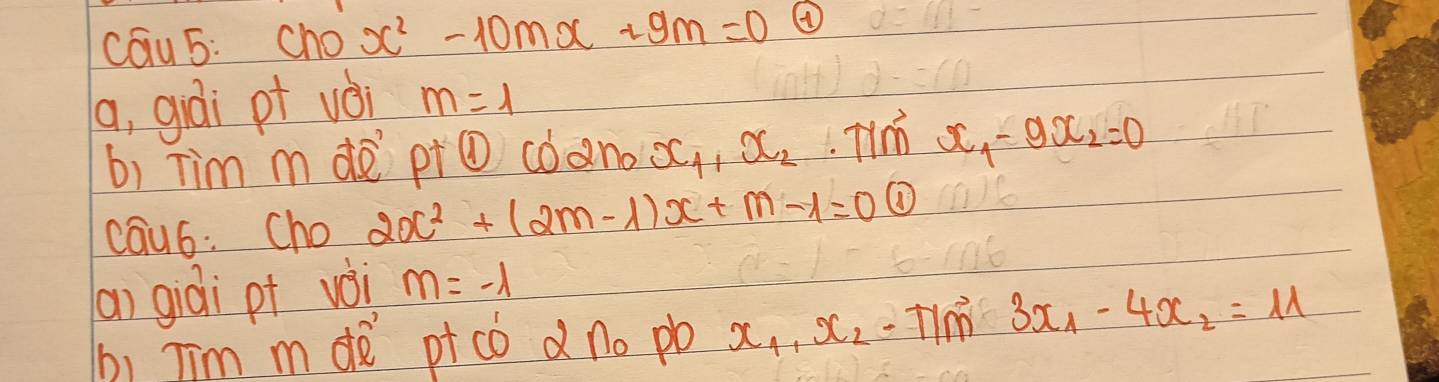 câu 5: Cho x² - 10mx + 9m = 0 ①
a, giải pt với m = 1
b) Tìm m để pt ① có 2 no x₁, x₂. T/m x₁ - 9x₂ = 0
câu 6: Cho 2x² + (2m - 1)x + m - 1 = 0 ①
a) giải pt với m = -1
b) Tìm m để pt có 2 no pb x₁, x₂ - T/m 3x₁ - 4x₂ = 11